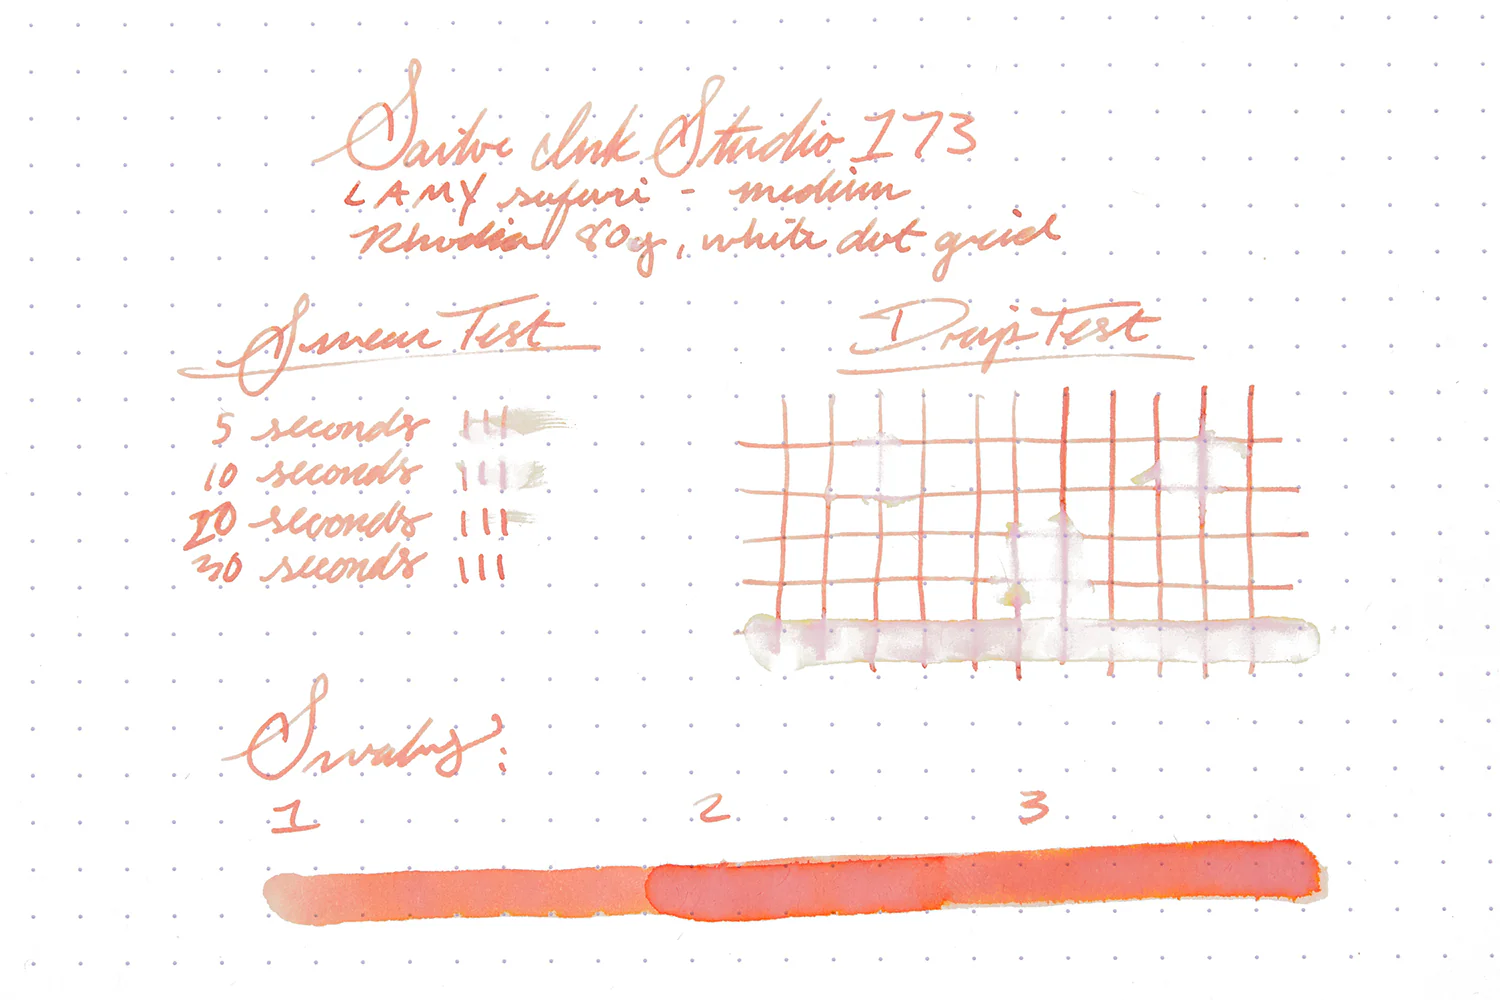 Sailor Ink Studio 173
LAMY safari - medium
Rhodia 80g, white dot grid
Smear Test
Drip Test
5 seconds
10 seconds
20 seconds
30 seconds
Swabs:
1 2 3